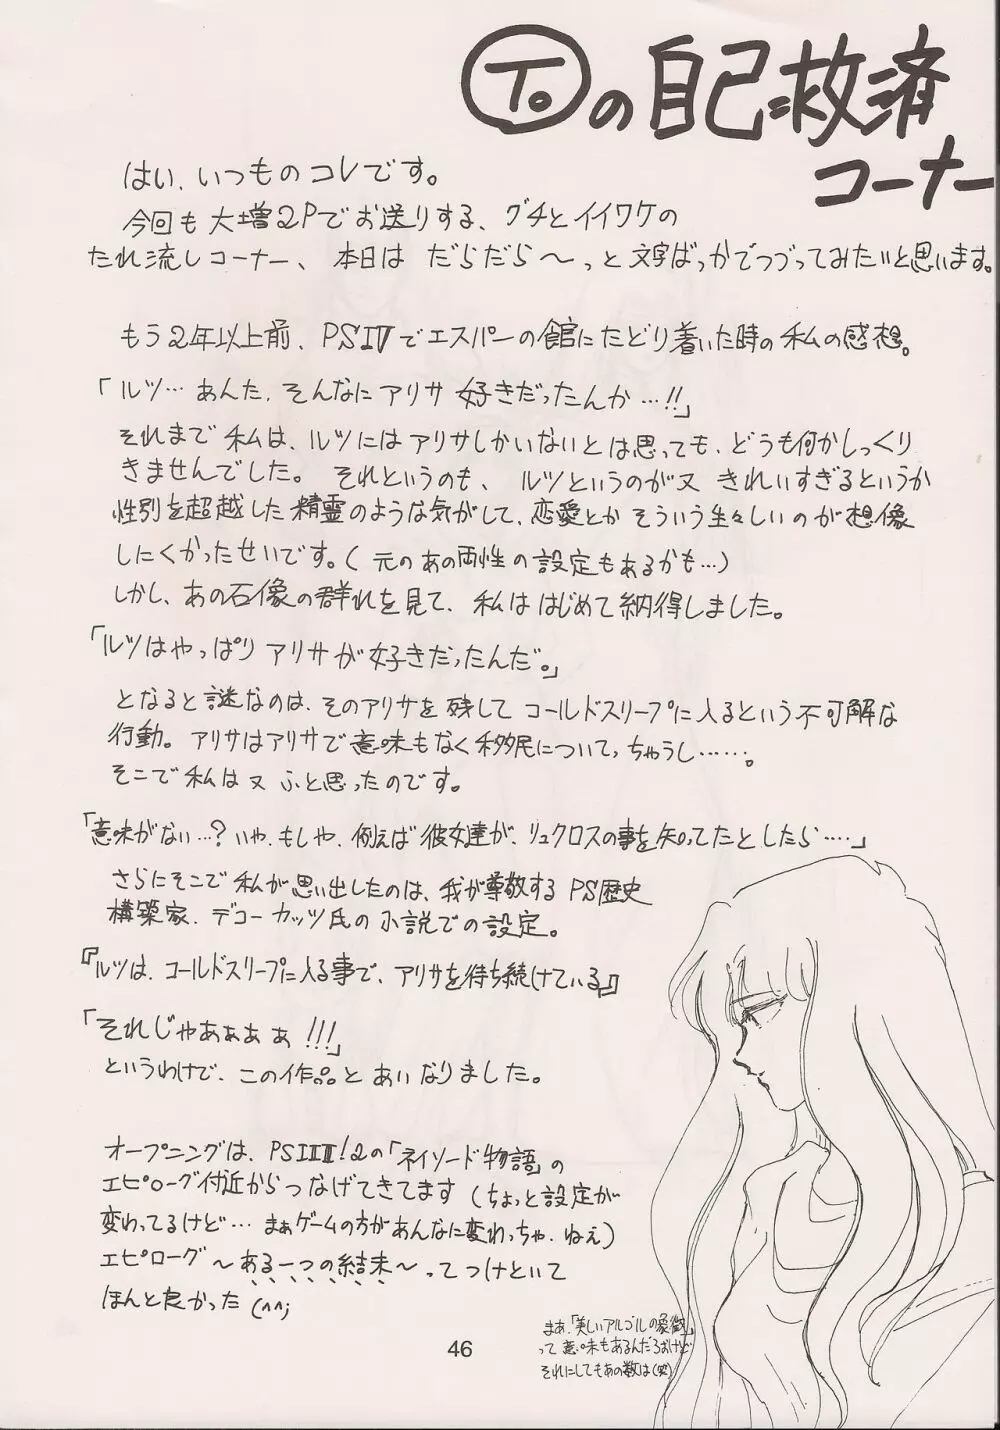 Toの自己救済
コーナー
はい、いつものコレです。
今回も大増2Pでお送りする、グチとイイワケの
たれ流しコーナー、本日は だらだら〜っと文字ばっかでつづってみたいと思います。
もう2年以上前、PSIVでエスパーの館にたどり着いた時の私の感想。
「ルツ…あんた、そんなにアリサ好きだったんか…!!」
それまで私は、ルツにはアリサしかいないとは思っても、どうも何かしっくり
きませんでした。それというのも、ルツというのが又きれいすぎるというか
性別を超越した精霊のような気がして、恋愛とかそういう生々しいのが想像
しにくかったせいです。(元のあの両性の設定もあるかも…)
しかし、あの石像の群れを見て、私ははじめて納得しました。
「ルツはやっぱりアリサが好きだったんだ。」
となると謎なのは、そのアリサを残してコールドスリープに入るという不可解な
行動。アリサはアリサで意味もなく移民についてっちゃうし……。
そこで私は又ふと思ったのです。
「意味がない…?いや、もしや、例えば彼女達が、リュクロスの事を知ってたとしたら…‥」
さらにそこで私が思い出したのは、我が尊敬するPS歴史
構築家、デコーカッツ氏の小説での設定。
『ルツは、コールドスリープに入る事で、アリサを待ち続けている』
「それじゃあぁぁぁ!!!」
というわけで、この作品とあいなりました。
オープニングは、PSIIII!2の「ネイソード物語」の
エピローグ付近からつなげてきてます(ちょっと設定が
変わってるけど…まぁゲームの方があんなに変わっちゃ、ねぇ)
エピローグ〜ある一つの結末〜ってつけといて
ほんと良かった(^^;
まあ、「美しいアルゴルの象徴」
って意味もあるんだろおけど
それにしてもあの数は(笑)
46